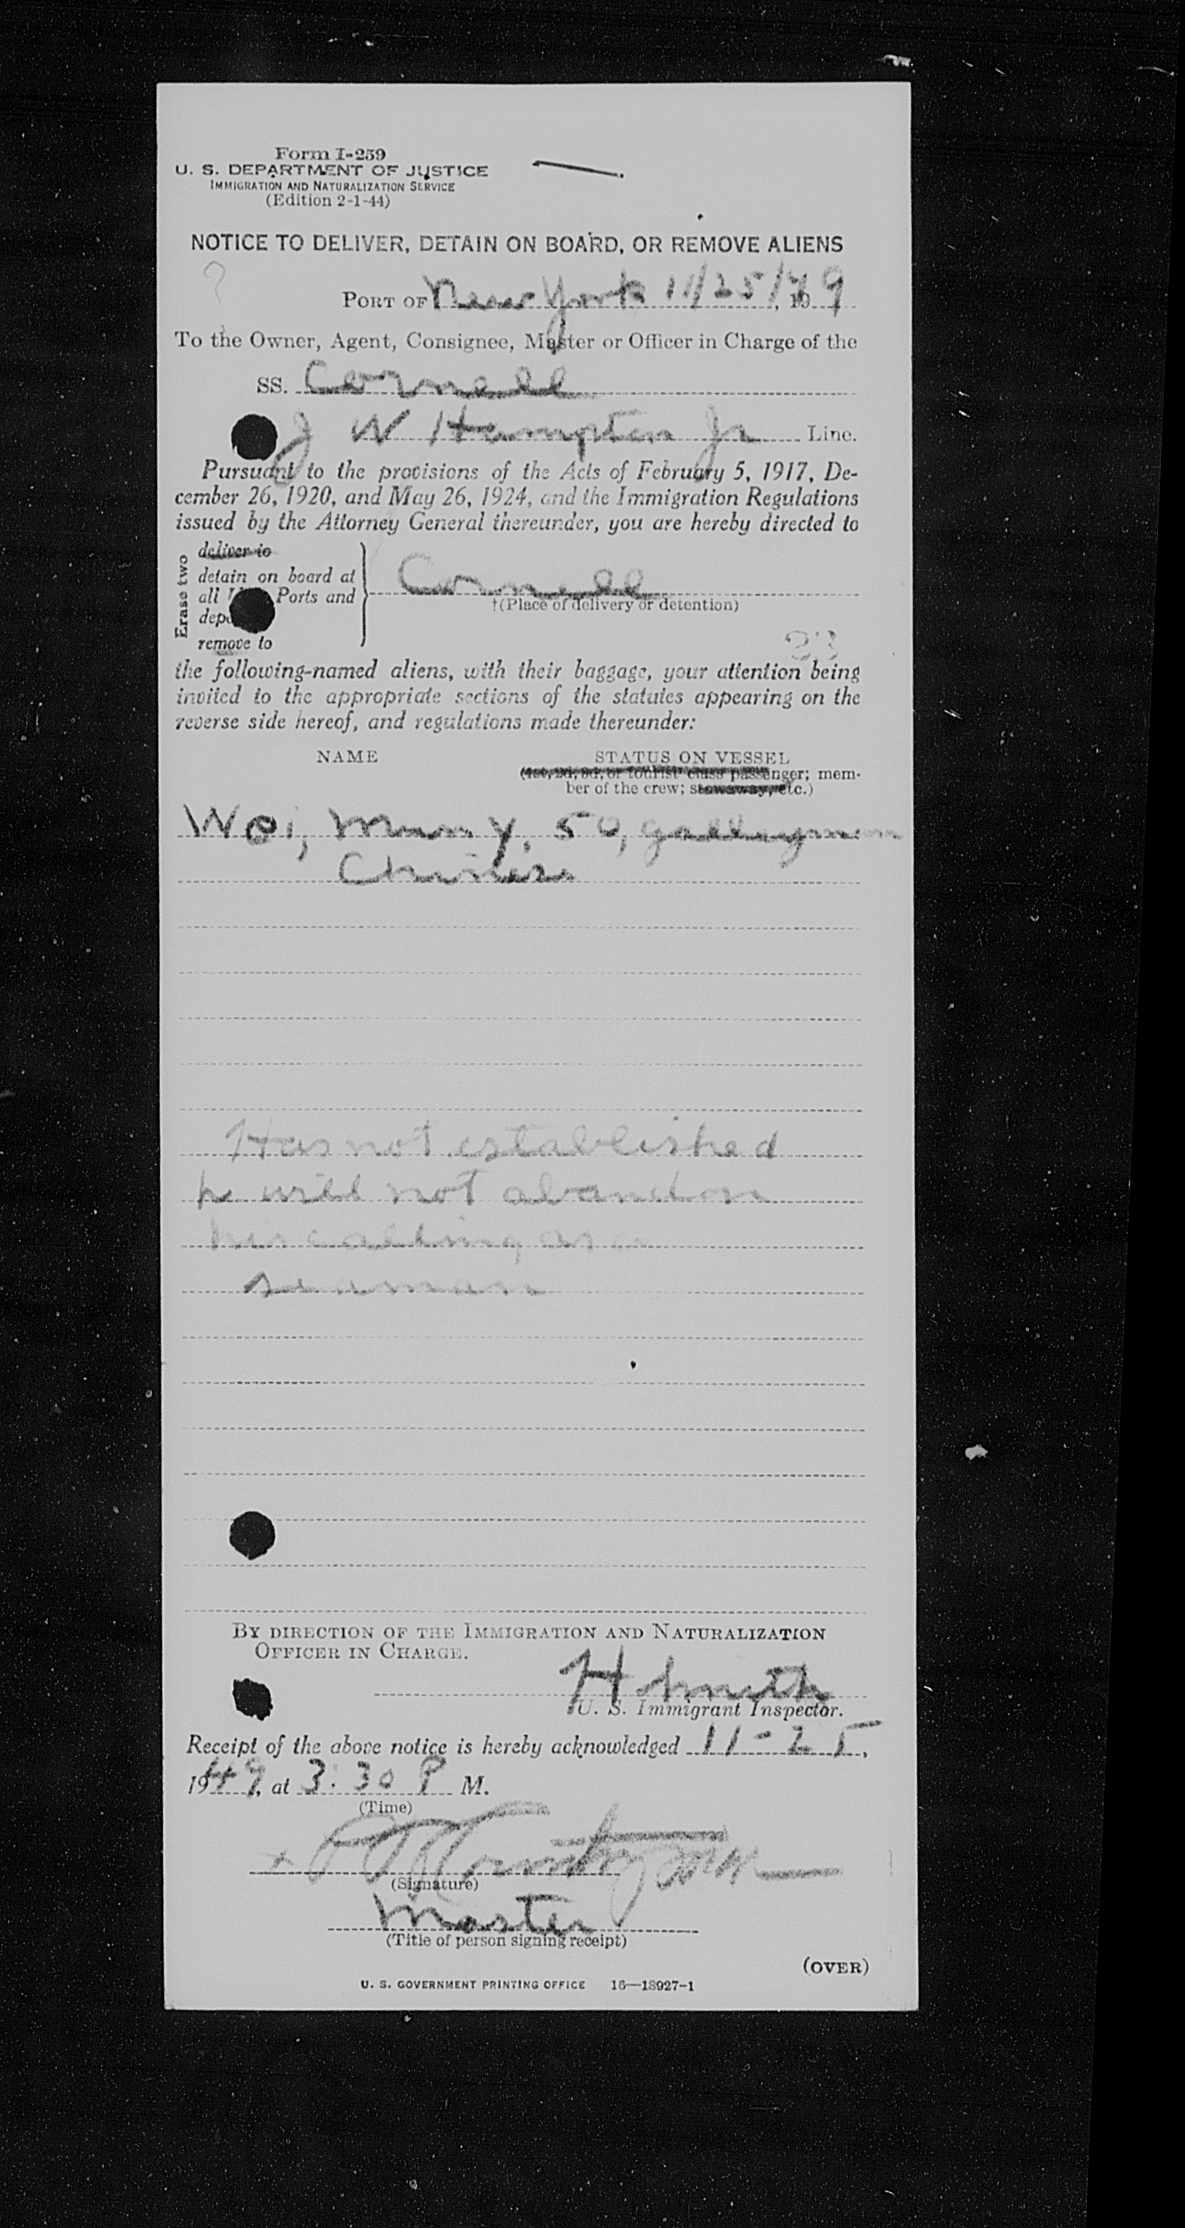 Form I-259
U. S. DEPARTMENT OF JUSTICE
IMMIGRATION AND NATURALIZATION SERVICE
(Edition 2-1-44)
NOTICE TO DELIVER, DETAIN ON BOARD, OR REMOVE ALIENS
?
PORT OF New York 11/25/, 1949
To the Owner, Agent, Consignee, Master or Officer in Charge of the
SS. Cornell
J W Hampton Jr Line.
Pursuant to the provisions of the Acts of February 5, 1917, De-
cember 26, 1920, and May 26, 1924, and the Immigration Regulations
issued by the Attorney General thereunder, you are hereby directed to
Erase two
deliver to
detain on board at
all Ports and
remove to
Cornell
†(Place of delivery or detention)
the following-named aliens, with their baggage, your attention being
invited to the appropriate sections of the statutes appearing on the
reverse side hereof, and regulations made thereunder:
NAME STATUS ON VESSEL
(1st, 2d, 3d, or tourist class passenger; mem-
ber of the crew; stowaway, etc.)
Woi, Mun Y, 50, galleyman
Chinese
Has not established
he will not abandon
his calling as a
seaman
BY DIRECTION OF THE IMMIGRATION AND NATURALIZATION
OFFICER IN CHARGE.
H Smith
U. S. Immigrant Inspector.
Receipt of the above notice is hereby acknowledged 11-25,
1949, at 3:30 P M.
(Time)
(Signature)
Master
(Title of person signing receipt)
(OVER)
U. S. GOVERNMENT PRINTING OFFICE 16—18927-1